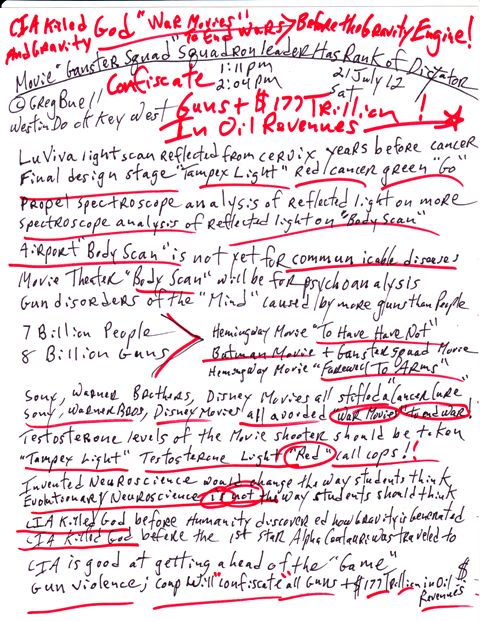 CIA Killed God "War Movies" Before the Gravity Engine!
And Gravity To End Wars
Movie "Ganster Squad" Squadron leader Has Rank of Dictator
© Greg Buell Confiscate 1:11 pm 21 July 12
2:04 pm Sat
Westin Dock Key West Guns + $177 Trillion !
In Oil Revenues
LuViva light scan reflected from cervix years before cancer
Final design stage "Tampex Light" Red cancer green "Go"
Propel spectroscope analysis of reflected light on more
Spectroscope analysis of reflected light on "Body Scan"
Airport "Body Scan" is not yet for communicable diseases
Movie Theater "Body Scan" will be for psychoanalysis
Gun disorders of the "Mind" caused by more guns than People
7 Billion People
8 Billion Guns
Hemingway Movie "To Have Have Not"
Batman Movie + Ganster Squad Movie
Hemingway Movie "Farewell To Arms"
Sony, Warner Brothers, Disney Movies all stifled a "Cancer Cure"
Sony, Warner Bros, Disney Movies all avorded "War Movies" to end war!
Testosterone levels of the Movie shooter should be taken
"Tampex Light" Testosterone Light "Red" call cops!!
Invented Neuroscience would change the way students think
Evolutionary Neuroscience is not the way students should think
CIA Killed God before Humanity discovered how gravity is generated
CIA Killed God before the 1st star Alpha Centauri was traveled to
CIA is good at getting ahead of the "Game"
Gun violence; Comp will "confiscate" all Guns + $177 Trillion in Oil $
Revenues